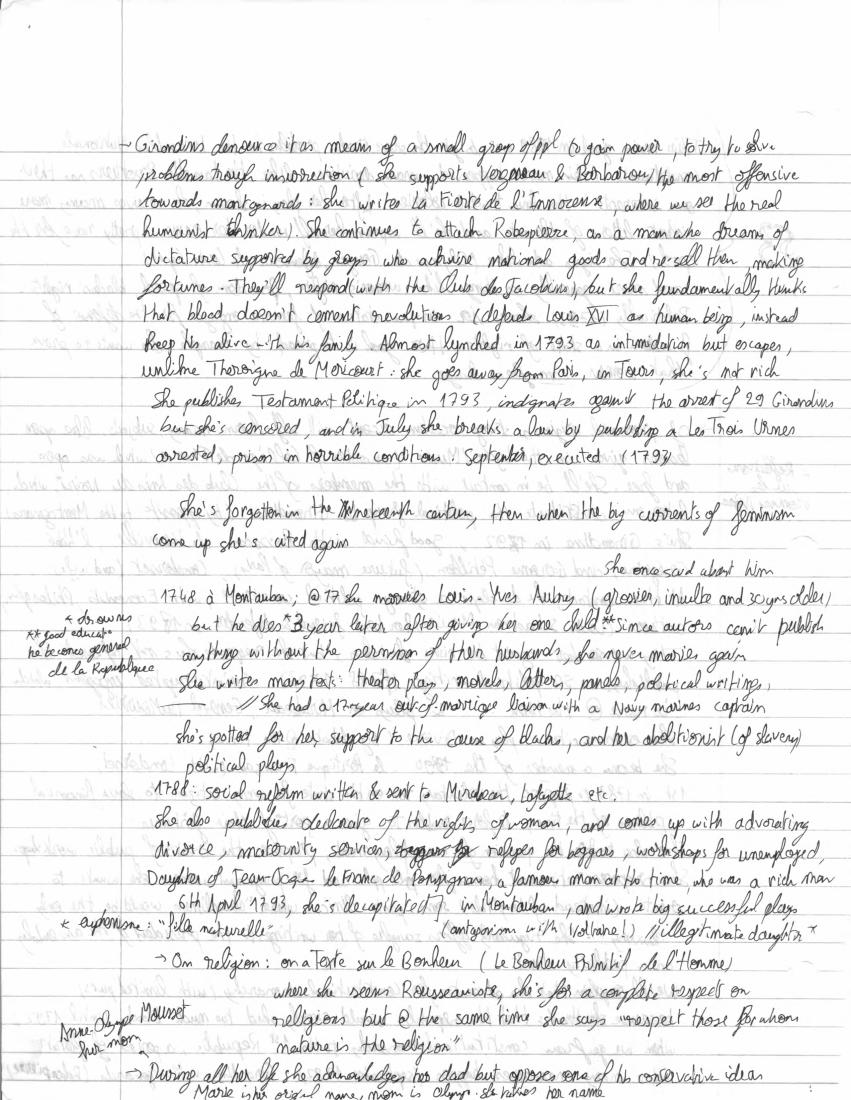 → Girondins denounce it as means of a small group of ppl to gain power, to try to solve
problems trough insurrection (she supports Vergneau & Barbarou, the most offensive
towards montgonards: she writes La Fierté de l'Innocense, where we see the real
humanist thinker). She continues to attach Robespierre, as a man who dreams of
dictature supported by groups who achuire national goods and re-sell then, making
fortunes. They'll respond (with the Club des Jacobins), but she fundamentally thinks
that blood doesn't cement revolutions (defends Louis XVI as human being, instead
keep his alive with his family. Almost lynched in 1793 as intymidation but escapes,
unlike Theroigne de Mericourt: she goes away from Paris, in Tours, she's not rich
She publishes Testament Politique in 1793, indignates against the arrest of 29 Girondins
but she's censored, and in July she breaks a law by publishing a Les Trois Urnes
arrested, prison in horrible conditions. September, executed (1793)
She's forgotten in the Nineteenth century, then when the big currents of feminism
come up she's cited again
She once said about him
1748 à Montauban; @ 17 she marries Louis-Yves Aubry (grossier, inculte and 30yrs older)
* drowns
** good educat°
he becomes general
de la Republique
but he dies * 3 year later after giving her one child.** Since autors can't publish
anything without the permission of their husbands, she never maries again
She writes many texts: theater play, novels, letters, panels, political writings,
// She had a 17-year out of marriage liaison with a Navy marines captain
she's spotted for her support to the cause of blacks, and her abolitionist (of slavery)
political plays
1788: social reform written & sent to Mirabeau, Lafayette etc.
She also publishes declarate of the rights of woman, and comes up with advocating
divorce, maternity services, refuges for beggars, workshops for unemployed,
Daughter of Jean-Jacque le Franc de Pompignan, a famous man at the time who was a rich man
6th April 1793, she's decapitated in Montauban, and wrote big successful plays
* euphenisme: "fille naturelle" (antagonism with Voltaire!) // illegitimate daughter *
→ On religion: on a Texte sur le Bonheur (Le Bonheur Primitif de l'Homme)
where she seems Rousseauiste, she's for a complete respect on
religions but @ the same time she says "respect those for whom
nature is the religion"
Anne-Olympe Mousset
her mom
→ During all her life she acknowledges her dad but opposes one of his conservative ideas
Marie is her original name, mom is Olympe. she takes her name